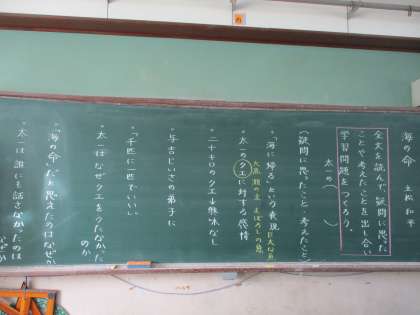 海の命 立松和平
全文を読んで、疑問に思った
ことや考えたことを出し合い
学習問題をつくろう。
太一の( )
(疑問に思ったこと・考えたこと)
・「海に帰る」という表現
太一のクエに対する感情
・二十キロのクエ→興味なし
・与吉じいさの弟子に
・「千匹に一匹でいい」
・太一はなぜクエをうたなかった
のか
・「海の命」だと思えたのはなぜか
・太一は誰にも話さなかったのは
なぜか